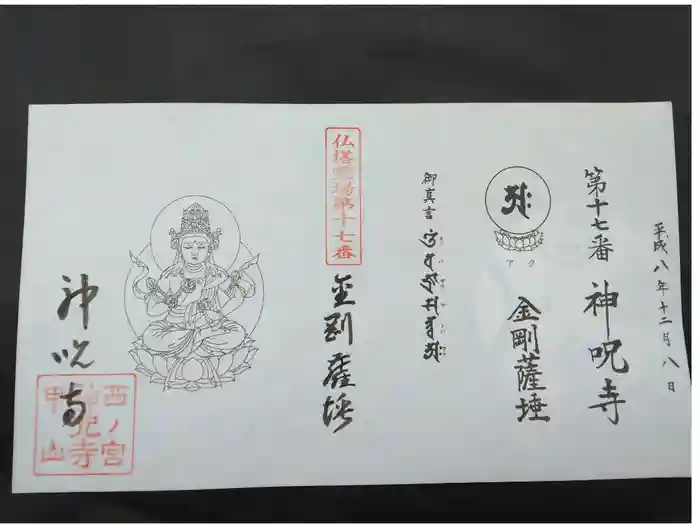 平成八年十二月八日
第十七番 神呪寺
アク
金剛薩埵
御真言
仏塔霊場第十七番
金剛薩埵
神呪寺
西ノ宮
神呪寺
甲山